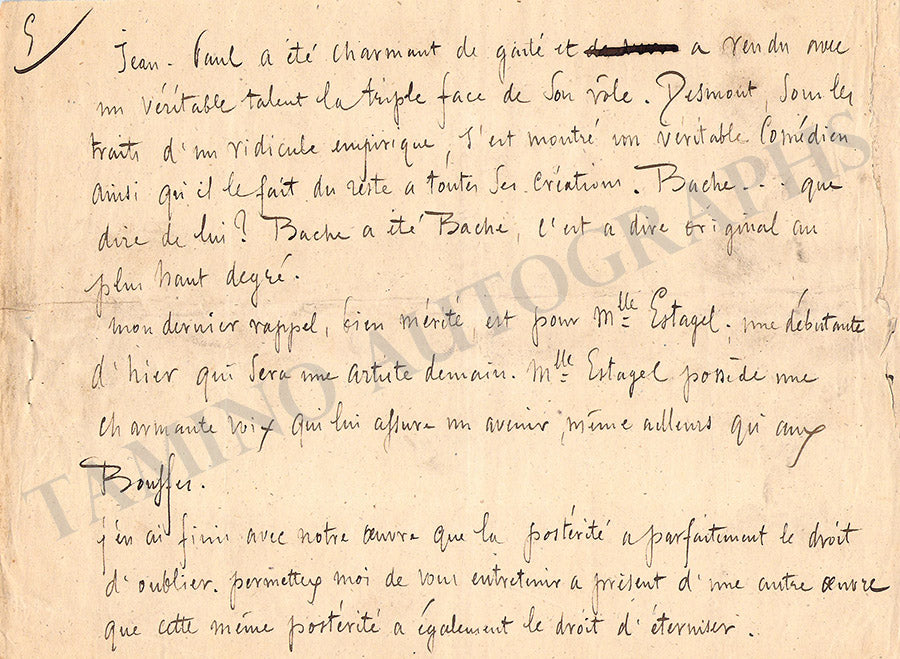 5
Jean-Paul a été charmant de gaité et a rendu avec
un véritable talent la triple face de son rôle. Desmont, sous les
traits d'un ridicule empirique, s'est montré un véritable Comédien
ainsi qu'il le fait du reste a toutes ses créations. Bache... que
dire de lui? Bache a été Bache, c'est a dire original au
plus haut degré.
mon dernier rappel, bien mérité, est pour Mlle Estagel. une débutante
d'hier qui sera une artiste demain. Mlle Estagel possède une
charmante voix qui lui assure un avenir, même ailleurs qu'aux
Bouffes.
j'en ai fini avec notre œuvre que la postérité a parfaitement le droit
d'oublier. permettez moi de vous entretenir a présent d'une autre œuvre
que cette même postérité a également le droit d'éterniser.
TAMINO AUTOGRAPHS